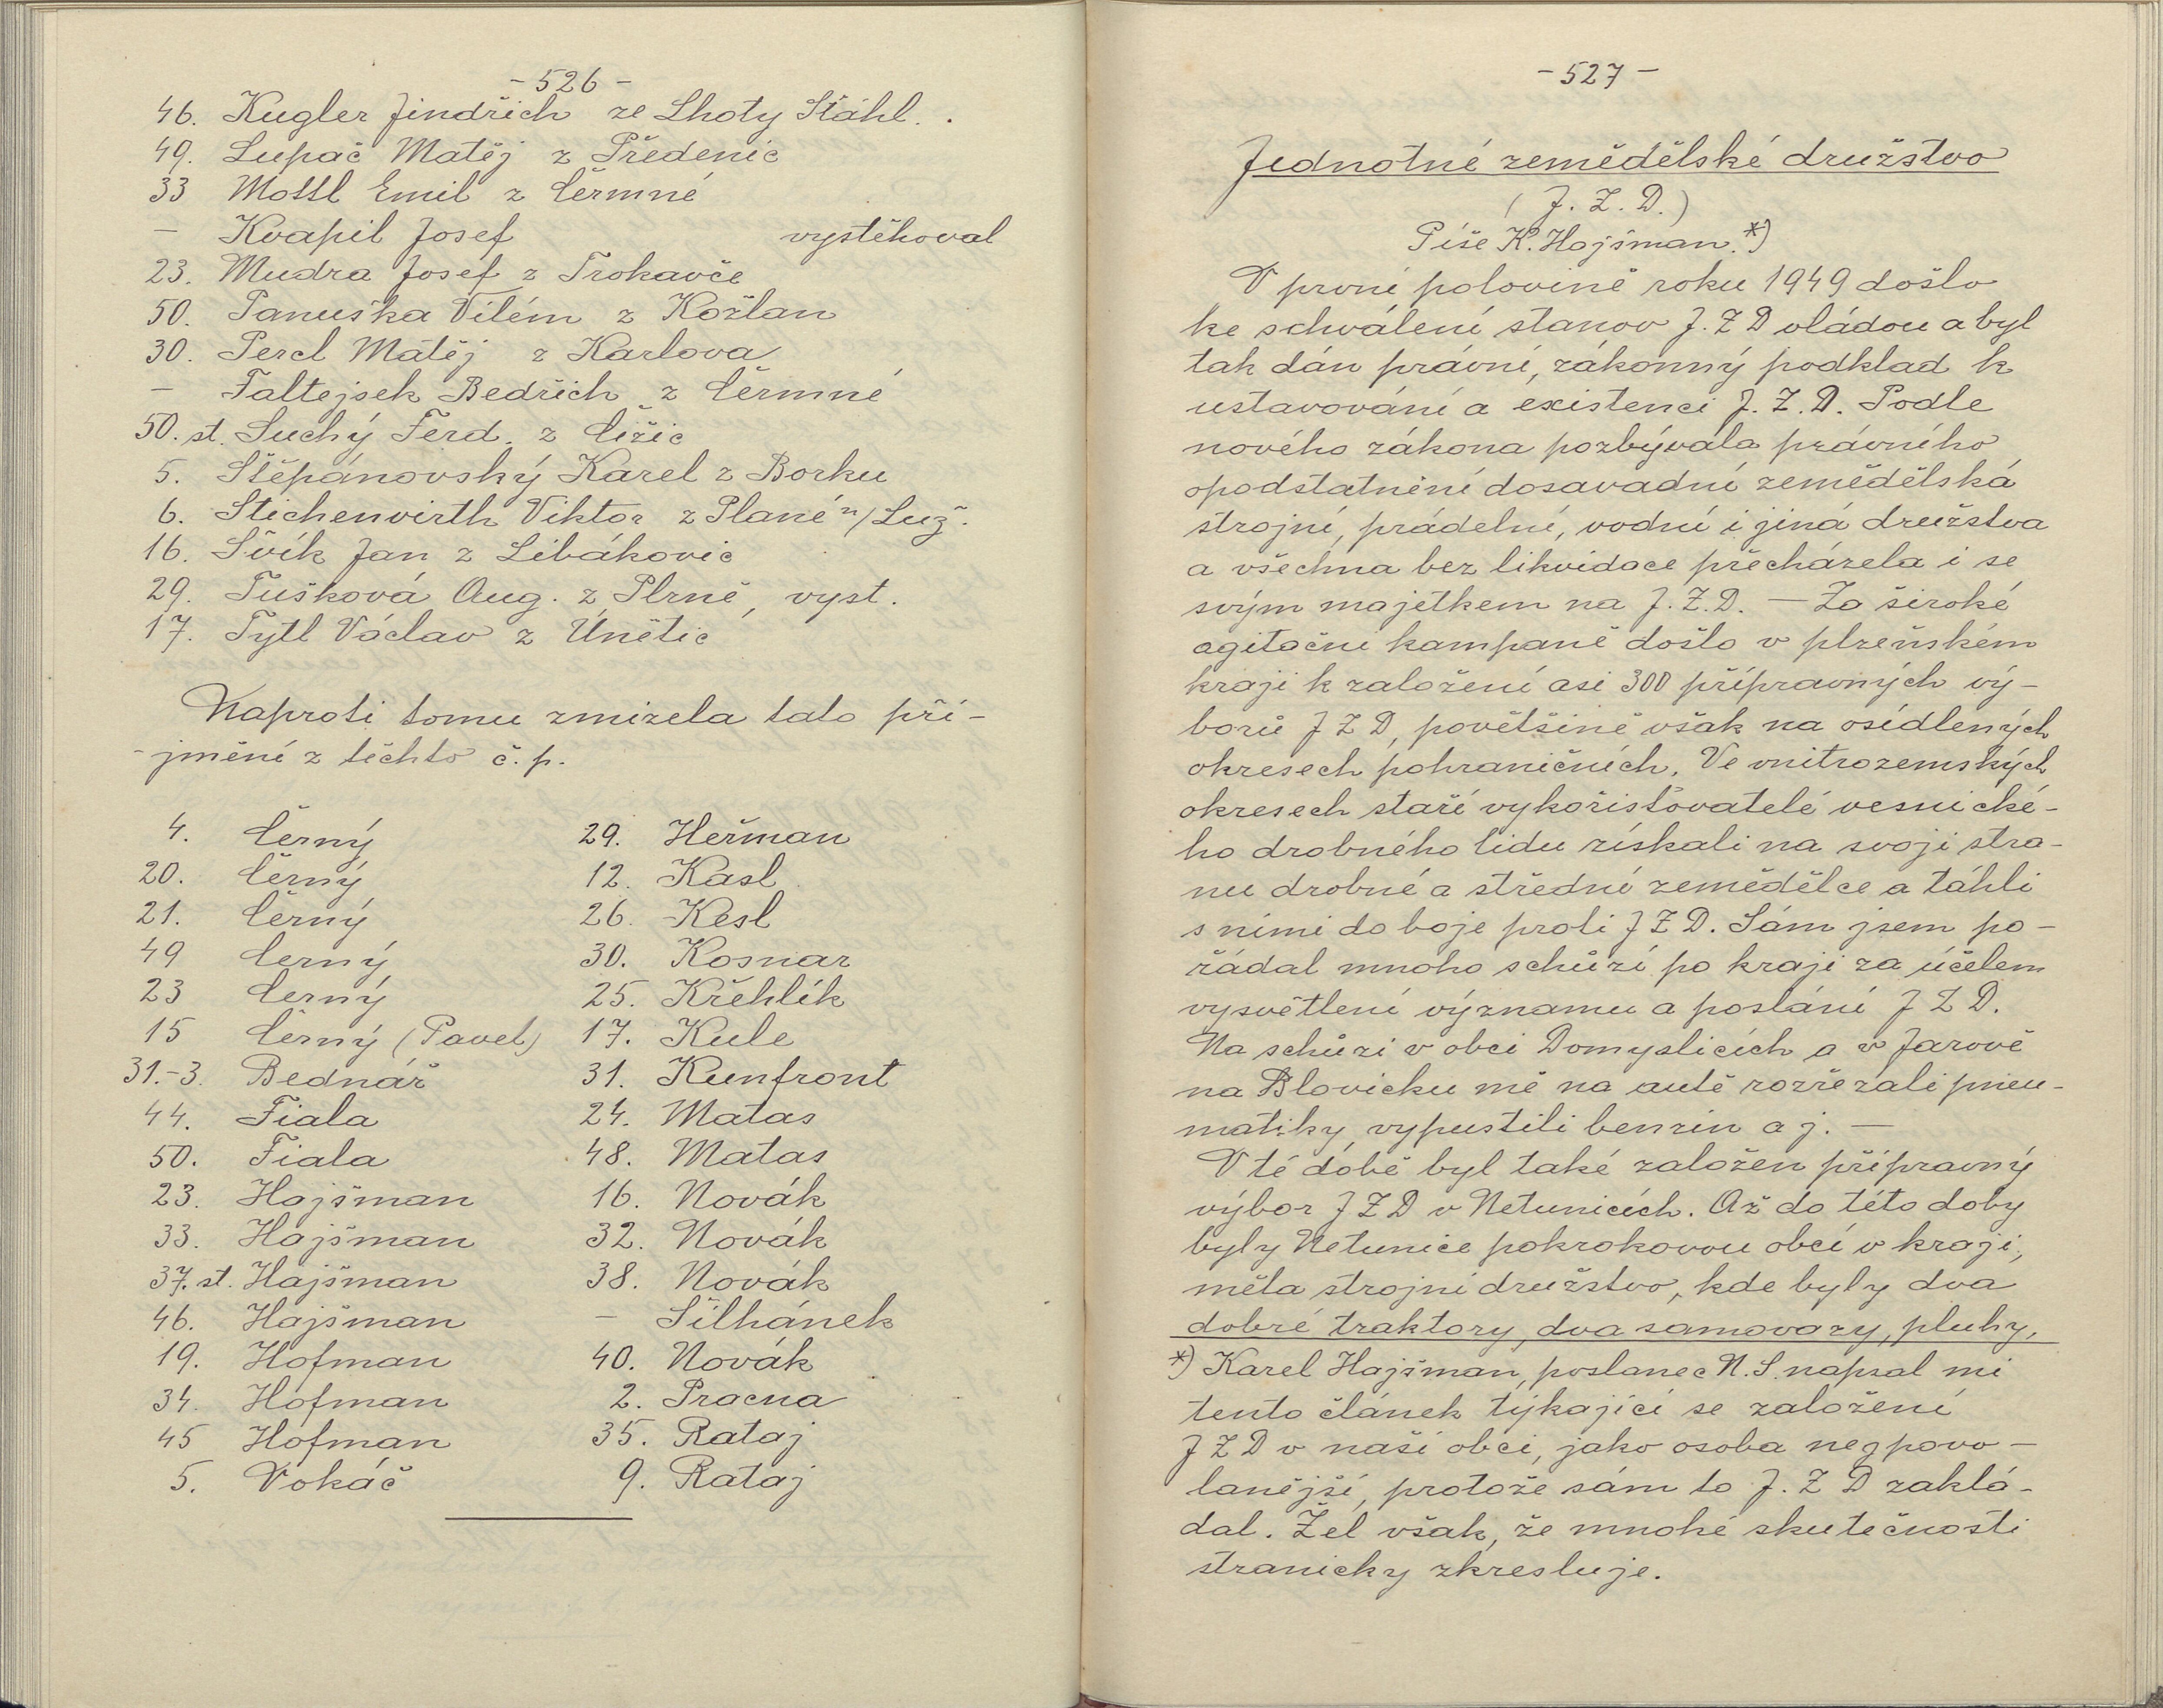 - 526 -
46. Kugler Jindřich ze Lhoty Šťáhl. .
49. Lupač Matěj z Předenic
33 Mottl Emil z Čermné
– Kvapil Josef vystěhoval
23. Mudra Josef z Trokavče
50. Panuška Vilém z Kožlan
30. Percl Matěj z Karlova
– Faltejsek Bedřich z Čermné
50. st. Suchý Ferd. z Čižic
5. Štěpánovský Karel z Borku
6. Stichenwirth Viktor z Plané n/Luž.
16. Švík Jan z Libákovic
29. Tušková Aug. z Plzně, vyst.
17. Tytl Václav z Únětic
Naproti tomu zmizela tato pří-
-jmění z těchto č. p.
4. Černý 29. Heřman
20. Černý 12. Kasl
21. Černý 26. Kesl
49 Černý 30. Kosnar
23 Černý 25. Křehlík
15 Černý (Pavel) 17. Kule
31.-3. Bednář 31. Kunfront
44. Fiala 24. Matas
50. Fiala 48. Matas
23. Hajšman 16. Novák
33. Hajšman 32. Novák
37. st. Hajšman 38. Novák
46. Hajšman – Šilhánek
19. Hofman 40. Novák
34. Hofman 2. Pracna
45 Hofman 35. Rataj
5. Vokáč 9. Rataj
- 527 -
Jednotné zemědělské družstvo
( J. Z. D.)
Píše K. Hajšman. *)
V první polovině roku 1949 došlo
ke schválení stanov J. Z D vládou a byl
tak dán právní, zákonný podklad k
ustavování a existenci J. Z. D. Podle
nového zákona pozbývala právního
opodstatnění dosavadní zemědělská
strojní, prádelní, vodní i jiná družstva
a všechna bez likvidace přecházela i se
svým majetkem na J. Z. D. – Za široké
agitační kampaně došlo v plzeňském
kraji k založení asi 300 přípravných vý-
borů J Z D, povětšině však na osídlených
okresech pohraničních. Ve vnitrozemských
okresech staří vykořisťovatelé vesnické-
ho drobného lidu získali na svoji stra-
nu drobné a střední zemědělce a táhli
s nimi do boje proti J Z D. Sám jsem po-
řádal mnoho schůzí po kraji za účelem
vysvětlení významu a poslání J Z D.
Na schůzi v obci Domyslicích a v Jarově
na Blovicku mě na autě rozřezali pneu-
matiky, vypustili benzin a j. –
V té době byl také založen přípravný
výbor J Z D v Netunicích. Až do této doby
byly Netunice pokrokovou obcí v kraji,
měla strojní družstvo, kde byly dva
dobré traktory, dva samovazy, pluhy,
*) Karel Hajšman, poslanec N. S. napsal mi
tento článek týkající se založení
J Z D v naší obci, jako osoba nejpovo-
lanější, protože sám to J. Z D zaklá-
dal. Žel však, že mnohé skutečnosti
stranicky zkresluje.